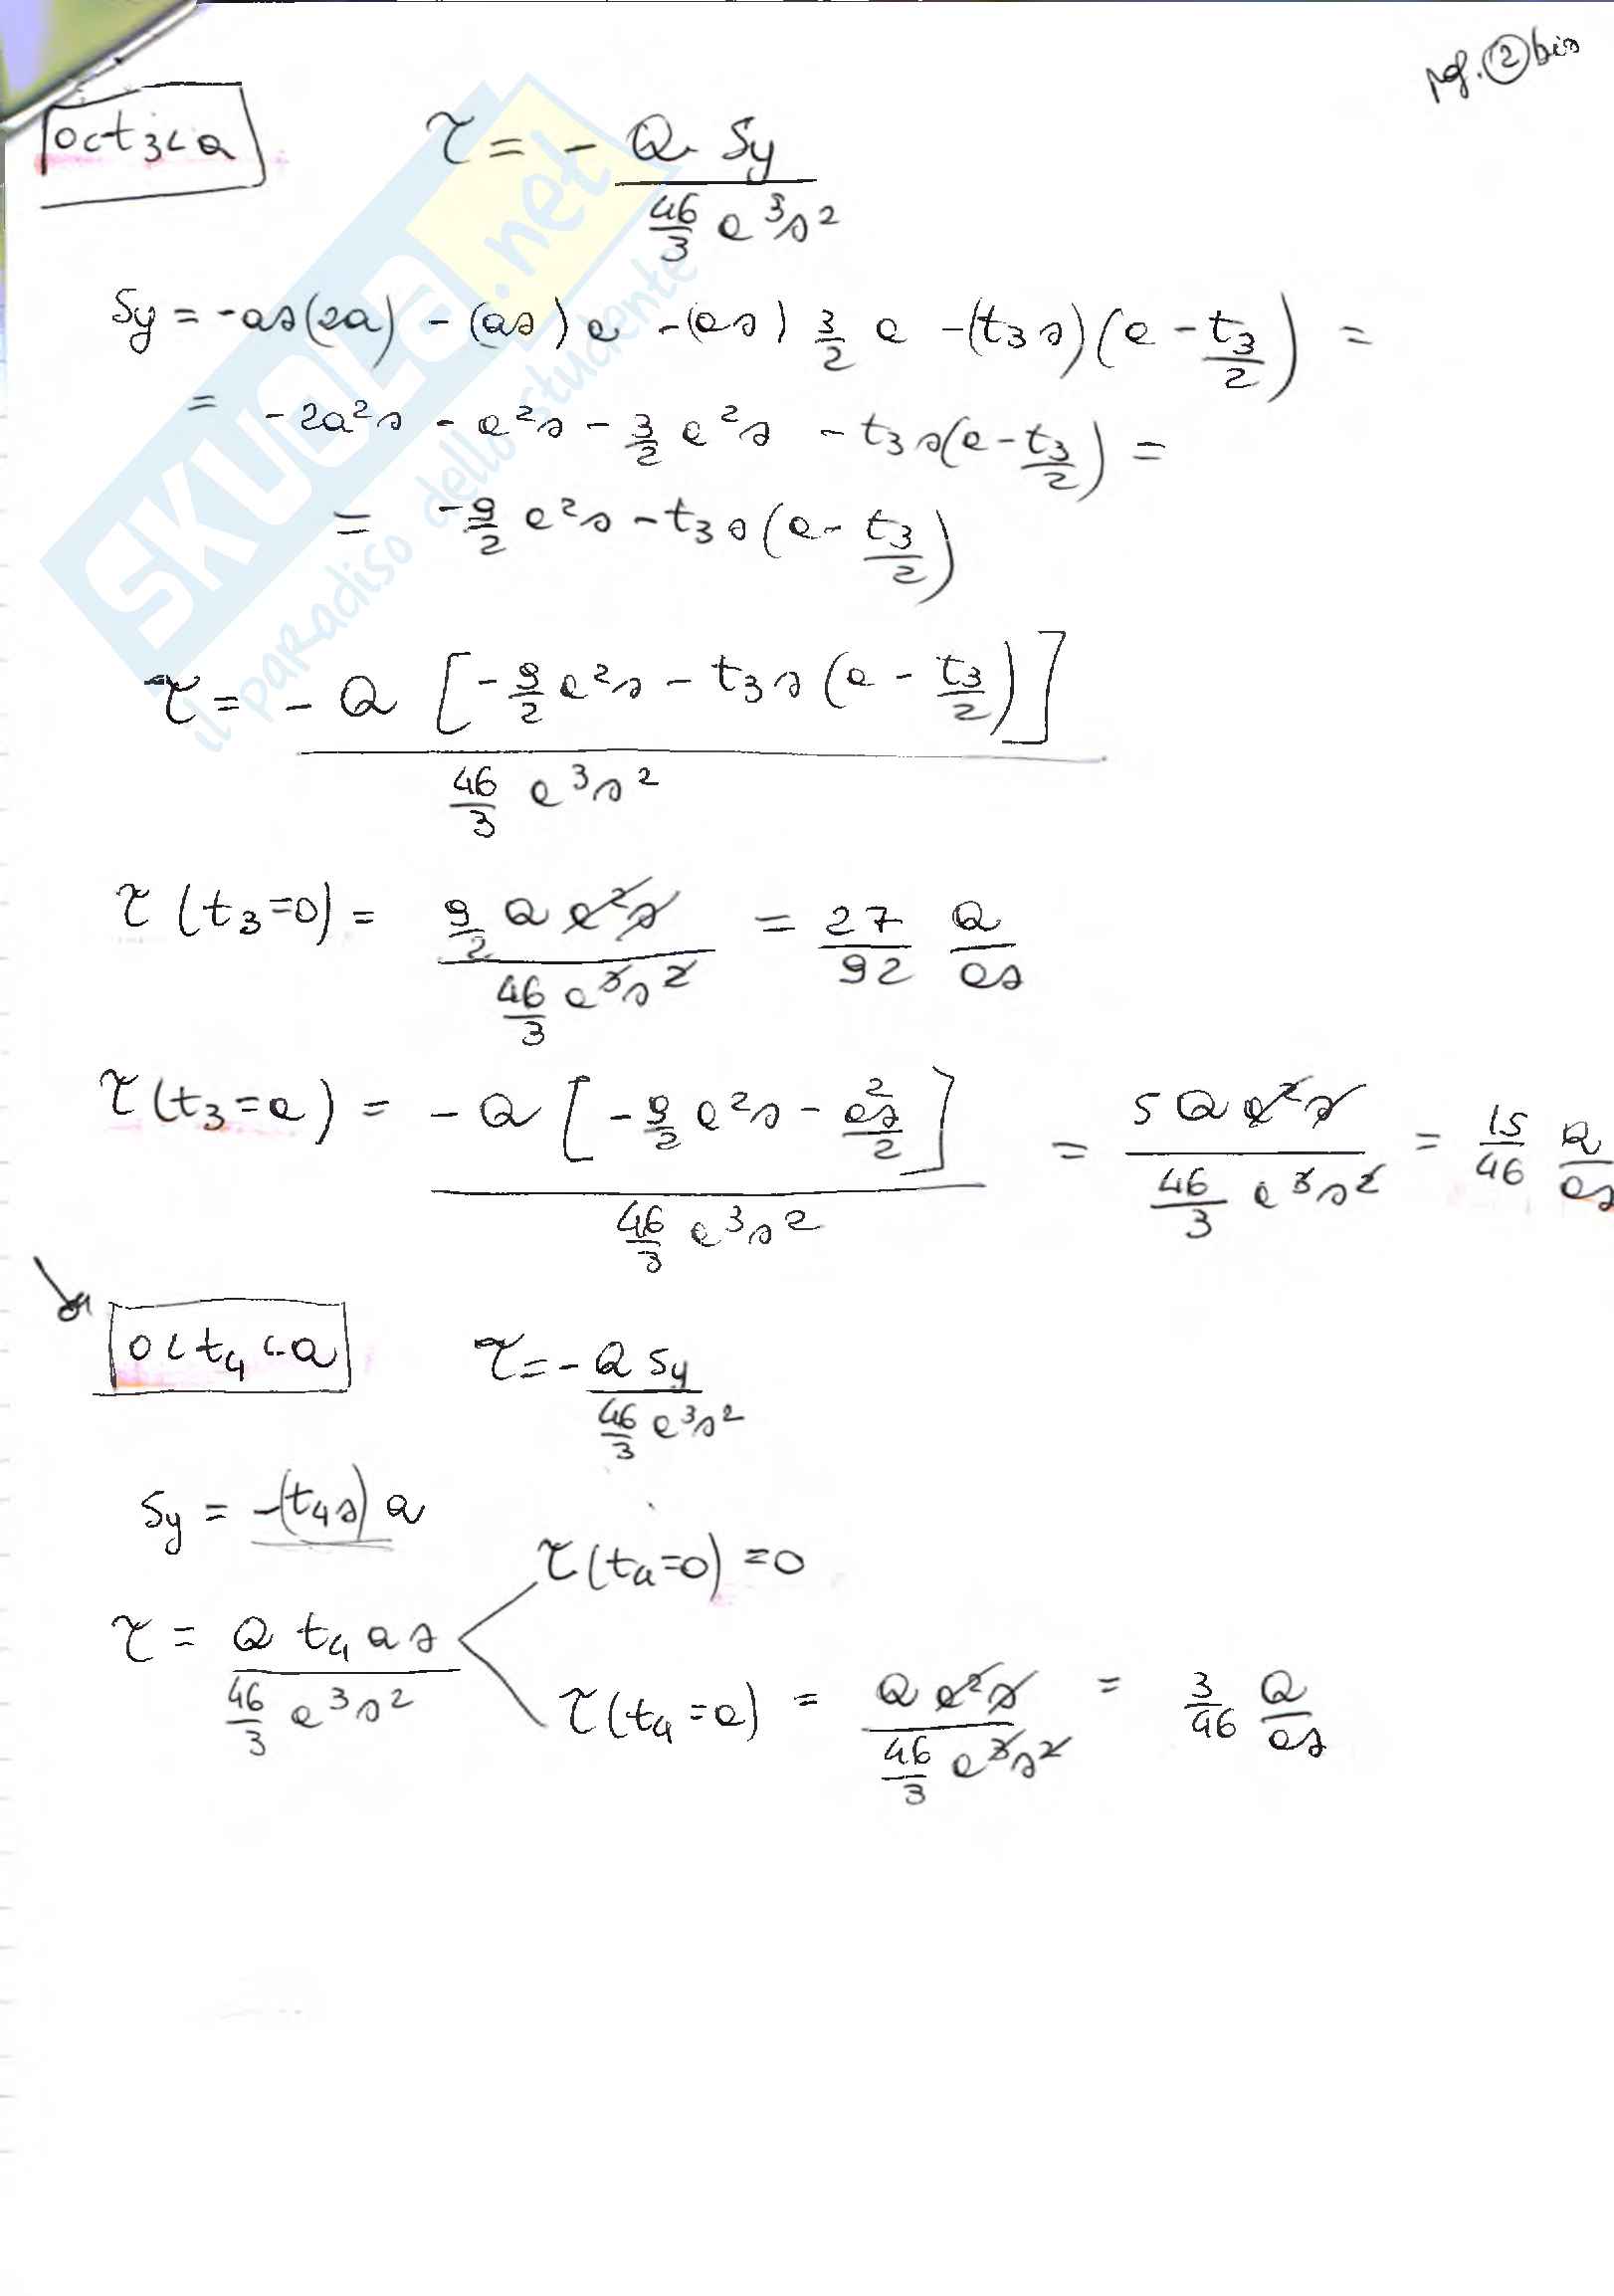 pg. ② bis
0<t₃<a
τ = - Q Sy / (46/3 a³s²)
Sy = -as(2a) - (as)a - (as) 3/2 a - (t₃s)(a - t₃/2) =
= -2a²s - a²s - 3/2 a²s - t₃s(a - t₃/2) =
= -9/2 a²s - t₃s(a - t₃/2)
τ = - Q [-9/2 a²s - t₃s(a - t₃/2)] / (46/3 a³s²)
τ(t₃=0) = 9/2 Q a²s / (46/3 a³s²) = 27/92 Q/as
τ(t₃=a) = - Q [-9/2 a²s - a²s/2] / (46/3 a³s²) = 5 Q a²s / (46/3 a³s²) = 15/46 Q/as
0<t₄<a
τ = - Q Sy / (46/3 a³s²)
Sy = -(t₄s) a
τ(t₄=0) = 0
τ = Q t₄ a s / (46/3 a³s²)
τ(t₄=a) = Q a²s / (46/3 a³s²) = 3/46 Q/as
SKUOLA.net
il paradiso dello studente